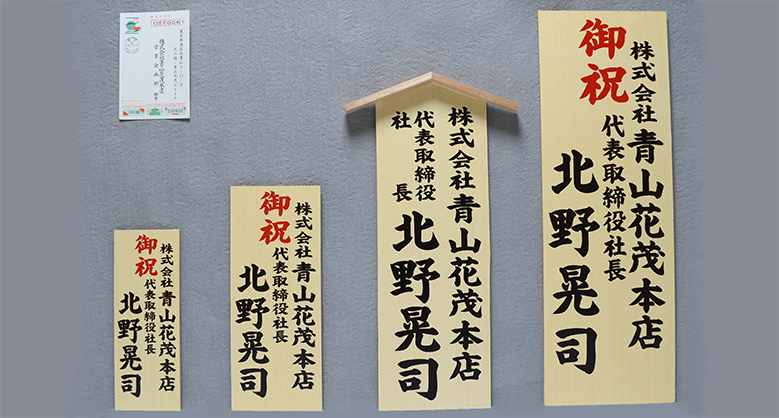 株式会社青山花茂本店
御祝
株式会社青山花茂本店
代表取締役社長
北野晃司
御祝
株式会社青山花茂本店
代表取締役社長
北野晃司
株式会社青山花茂本店
代表取締役
社長
北野晃司
御祝
株式会社青山花茂本店
代表取締役社長
北野晃司